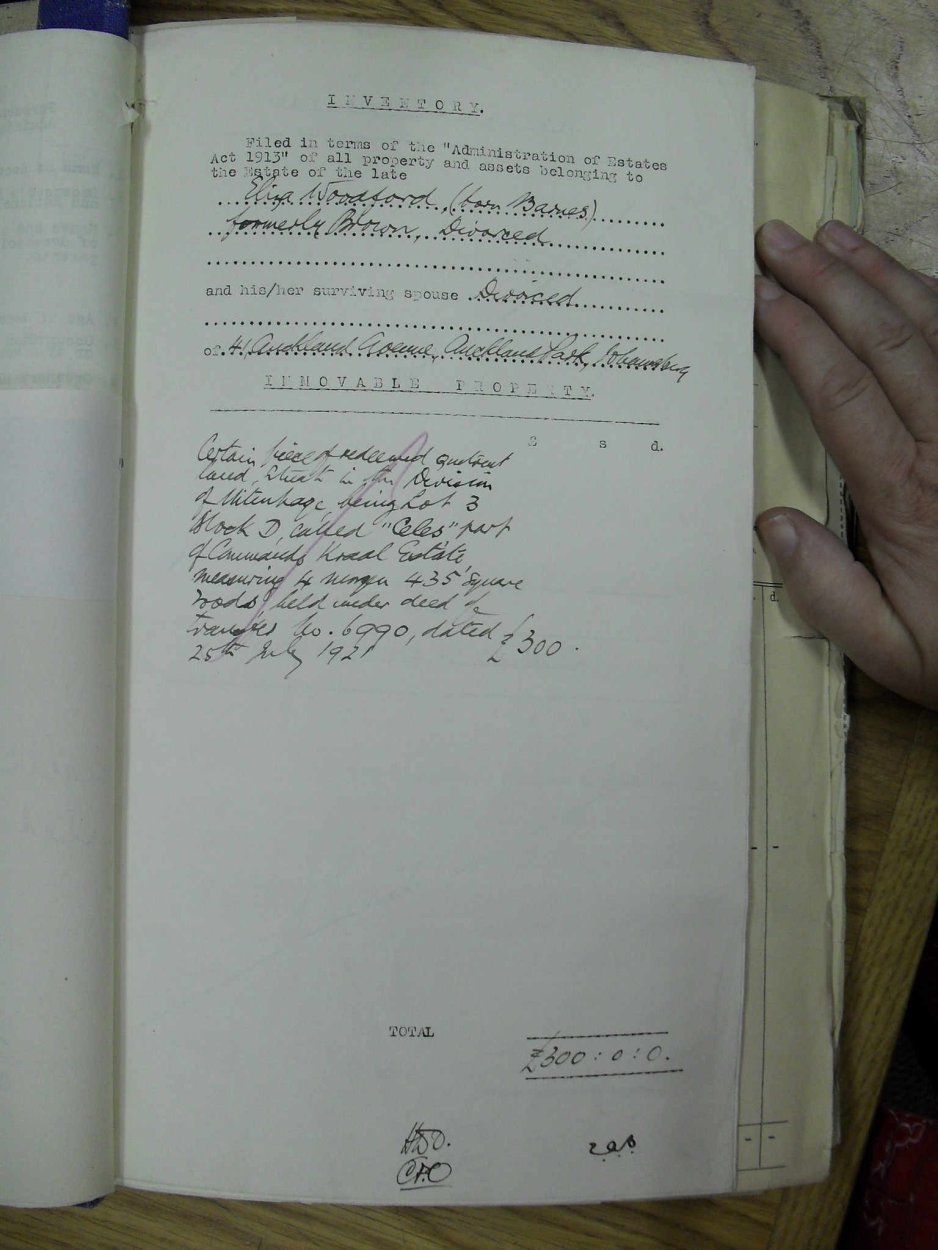 INVENTORY.
Filed in terms of the "Administration of Estates
Act 1913" of all property and assets belonging to
the Estate of the late
Eliza Woodford, (born Barnes)
formerly Brown, Divorced
and his/her surviving spouse Divorced
of 41, Auckland Avenue, Auckland Park,
IMMOVABLE PROPERTY.
£ s d.
Certain piece of redeemed quitrent
land, situate in the Division
of Uitenhage being Lot 3
Block D, called "Celes" part
of Commando Kraal Estate
measuring 4 morgen 435 square
roods held under deed of
transfer No. 6990, dated
25th July 1921 £300.
TOTAL
£300:0:0.